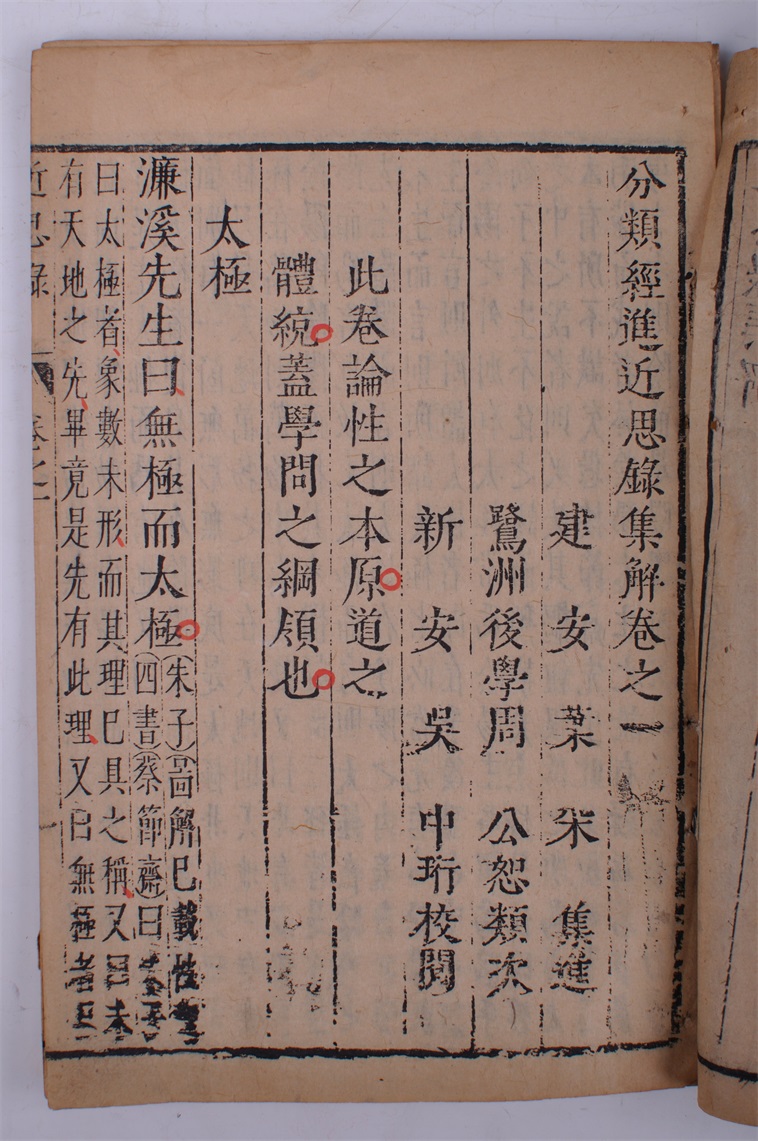 分類經進近思錄集解卷之一
建安葉采集進
鷺洲後學周公恕類次
新安吳中珩校閱
此卷論性之本原道之
體統蓋學問之綱領也
太極
濂溪先生曰無極而太極
朱子啚解已載性
四書蔡節齋曰
曰太極者象數未形而其理已具之稱又曰未
有天地之先畢竟是先有此理又曰無極者
近思錄
卷之一